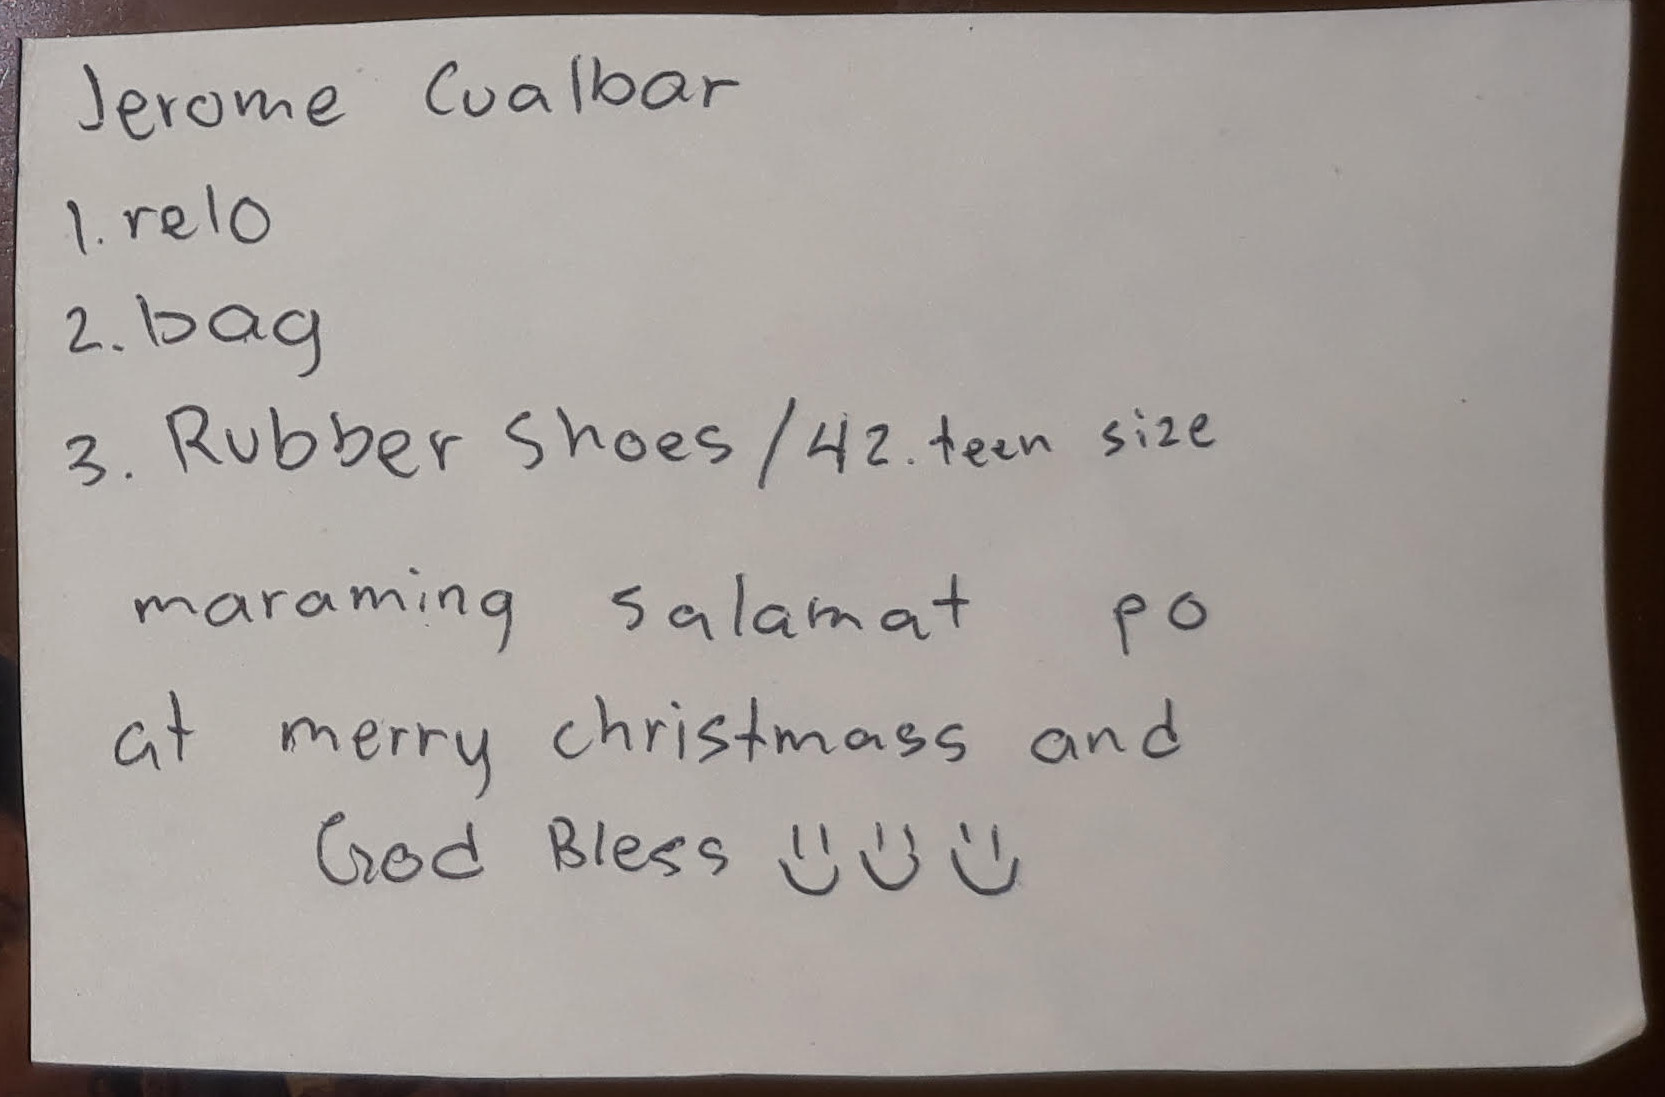 Jerome Cualbar
1. relo
2. bag
3. Rubber Shoes / 42. teen size
maraming salamat po
at merry christmass and
God Bless